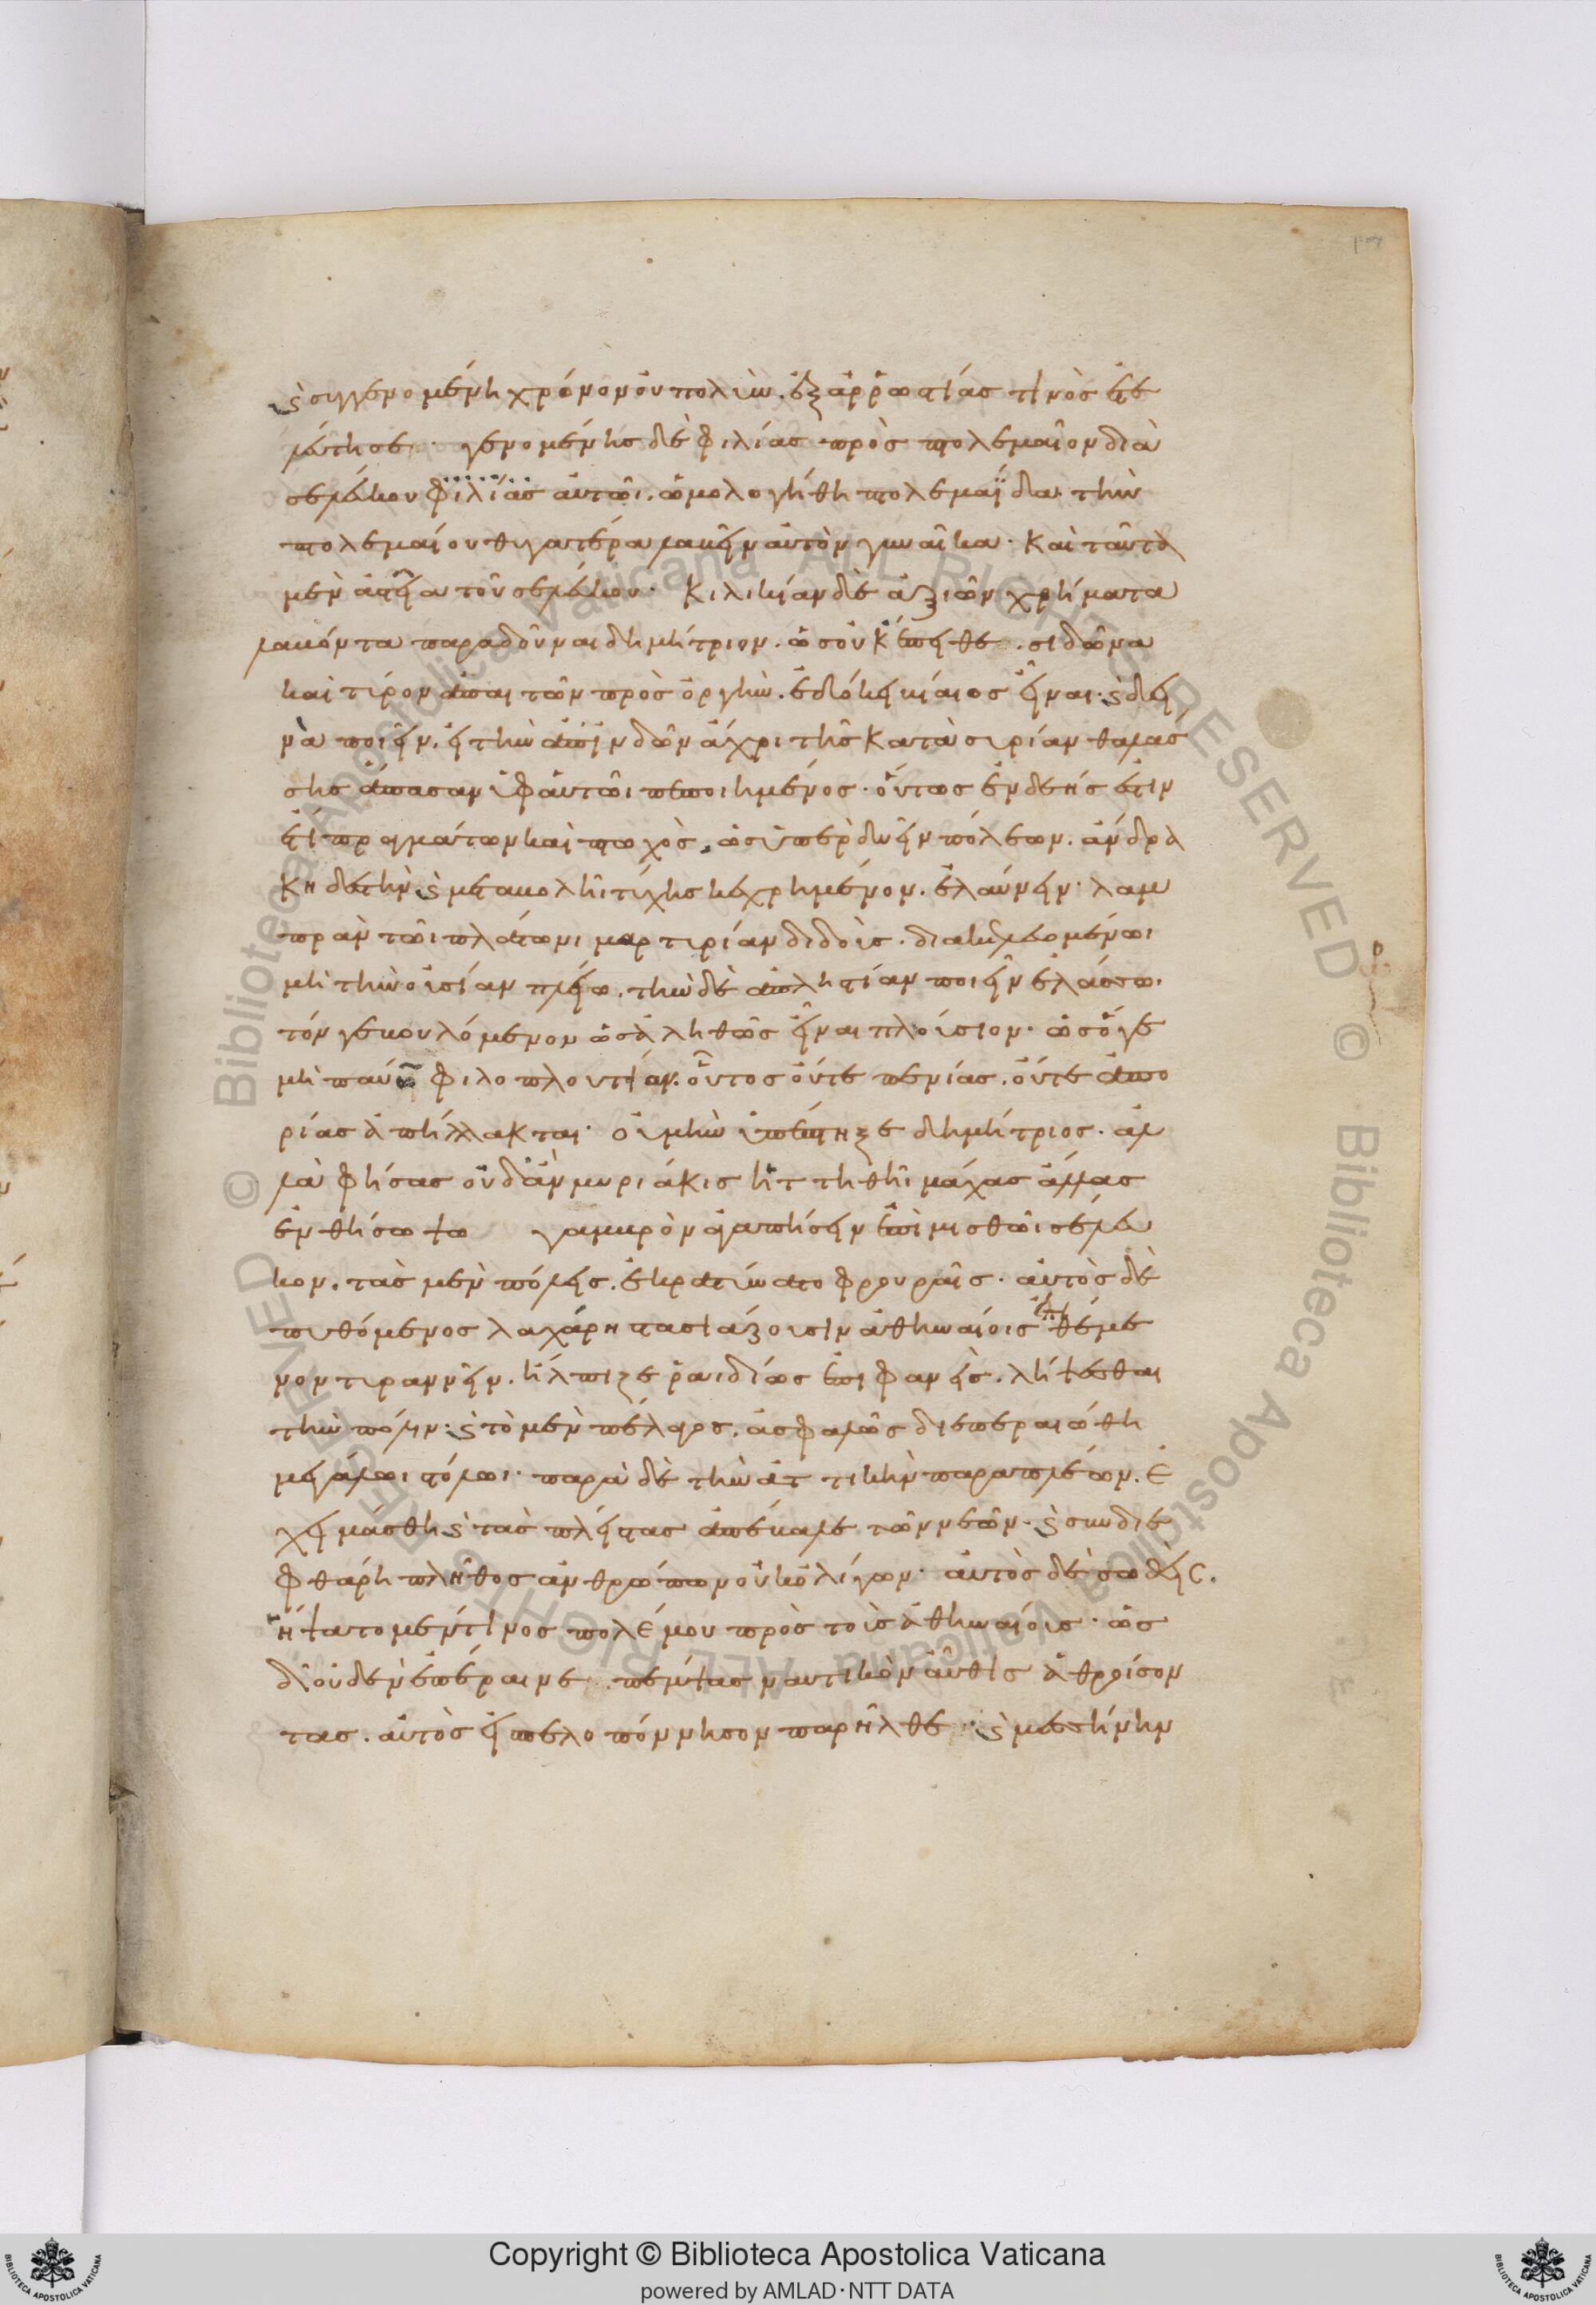 καὶ συγγενομένη χρόνον οὐ πολὺν. ἐξ ἀρρωστίας τινὸς ἐτε
λεύτησε· γενομένης δὲ φιλίας πρὸς πτολεμαῖον διὰ
σελεύκου φιλίας αὐτῶι. ὡμολογήθη πτολεμαΐδα τὴν
πτολεμαίου θυγατέρα λαβεῖν αὐτὸν γυναῖκα· καὶ ταῦτα
μὲν ἀστεῖα τοῦ σελεύκου· κιλικίαν δὲ ἀξιῶν χρήματα
λαβόντα παραδοῦναι δημήτριον. ὡς οὐκ ἔπειθε. σιδῶνα
καὶ τύρον ἀπαιτῶν πρὸς ὀργὴν. ἐδόκει βίαιος εἶναι· καὶ δει
νὰ ποιεῖν. εἰ τὴν ἀπ' ἰνδῶν ἄχρι τῆς κατὰ συρίαν θαλάσ
σης ἅπασαν ὑφ' αὑτῶι πεποιημένος· οὕτως ἐνδεής ἐστιν
ἔτι πραγμάτων καὶ πτωχὸς, ὡς ὑπὲρ δυεῖν πόλεων. ἄνδρα
κηδεστὴν καὶ μεταβολῆι τύχης κεχρημένον. ἐλαύνειν· λαμ
πρὰν τῶι πλάτωνι μαρτυρίαν διδοὺς. διακελευομένωι
μὴ τὴν οὐσίαν πλείω. τὴν δὲ ἀπληστίαν ποιεῖν ἐλάσσω.
τόν γε βουλόμενον ὡς ἀληθῶς εἶναι πλούσιον· ὡς ὅγε
μὴ παύων φιλοπλουτίαν. οὗτος οὔτε πενίας. οὔτε ἀπο
ρίας ἀπήλλακται· οὐ μὴν ὑπέπτηξε δημήτριος. ἀλ
λὰ φήσας οὐδ' ἂν μυριάκις ἡττηθῆι μάχας ἄλλας
ἐν θήσω ψω γαμβρὸν ἀγαπήσειν ἐπὶ μισθῶι σέλευ
κον. τὰς μὲν πόλεις. ἐκρατύνατο φρουραῖς· αὐτὸς δὲ
πυθόμενος λαχάρη στασιάζουσιν ἀθηναίοις ἐπιθέμε
νον τυραννεῖν. ἤλπιζε ῥαιδίως ἐπιφανεὶς. λήψεσθαι
τὴν πόλιν· καὶ τὸ μὲν πέλαγος. ἀσφαλῶς διεπεραιώθη
μεγάλωι στόλωι· παρὰ δὲ τὴν ἀττικὴν παραπλέων. ἐ
χειμάσθη καὶ τὰς πλείστας ἀπέβαλε τῶν νεῶν· καὶ συνδιε
φθάρη πλῆθος ἀνθρώπων οὐκ ὀλίγων· αὐτὸς δὲ σωθεὶς.
ἥψατο μέν τινος πολέμου πρὸς τοὺς ἀθηναίους· ὡς
δ' οὐδὲν ἐπέραινε. πέμψας ναυτικὸν αὖθις ἀθροίσον
τας. αὐτὸς εἰς πελοπόννησον παρῆλθε· καὶ μεσσήνην